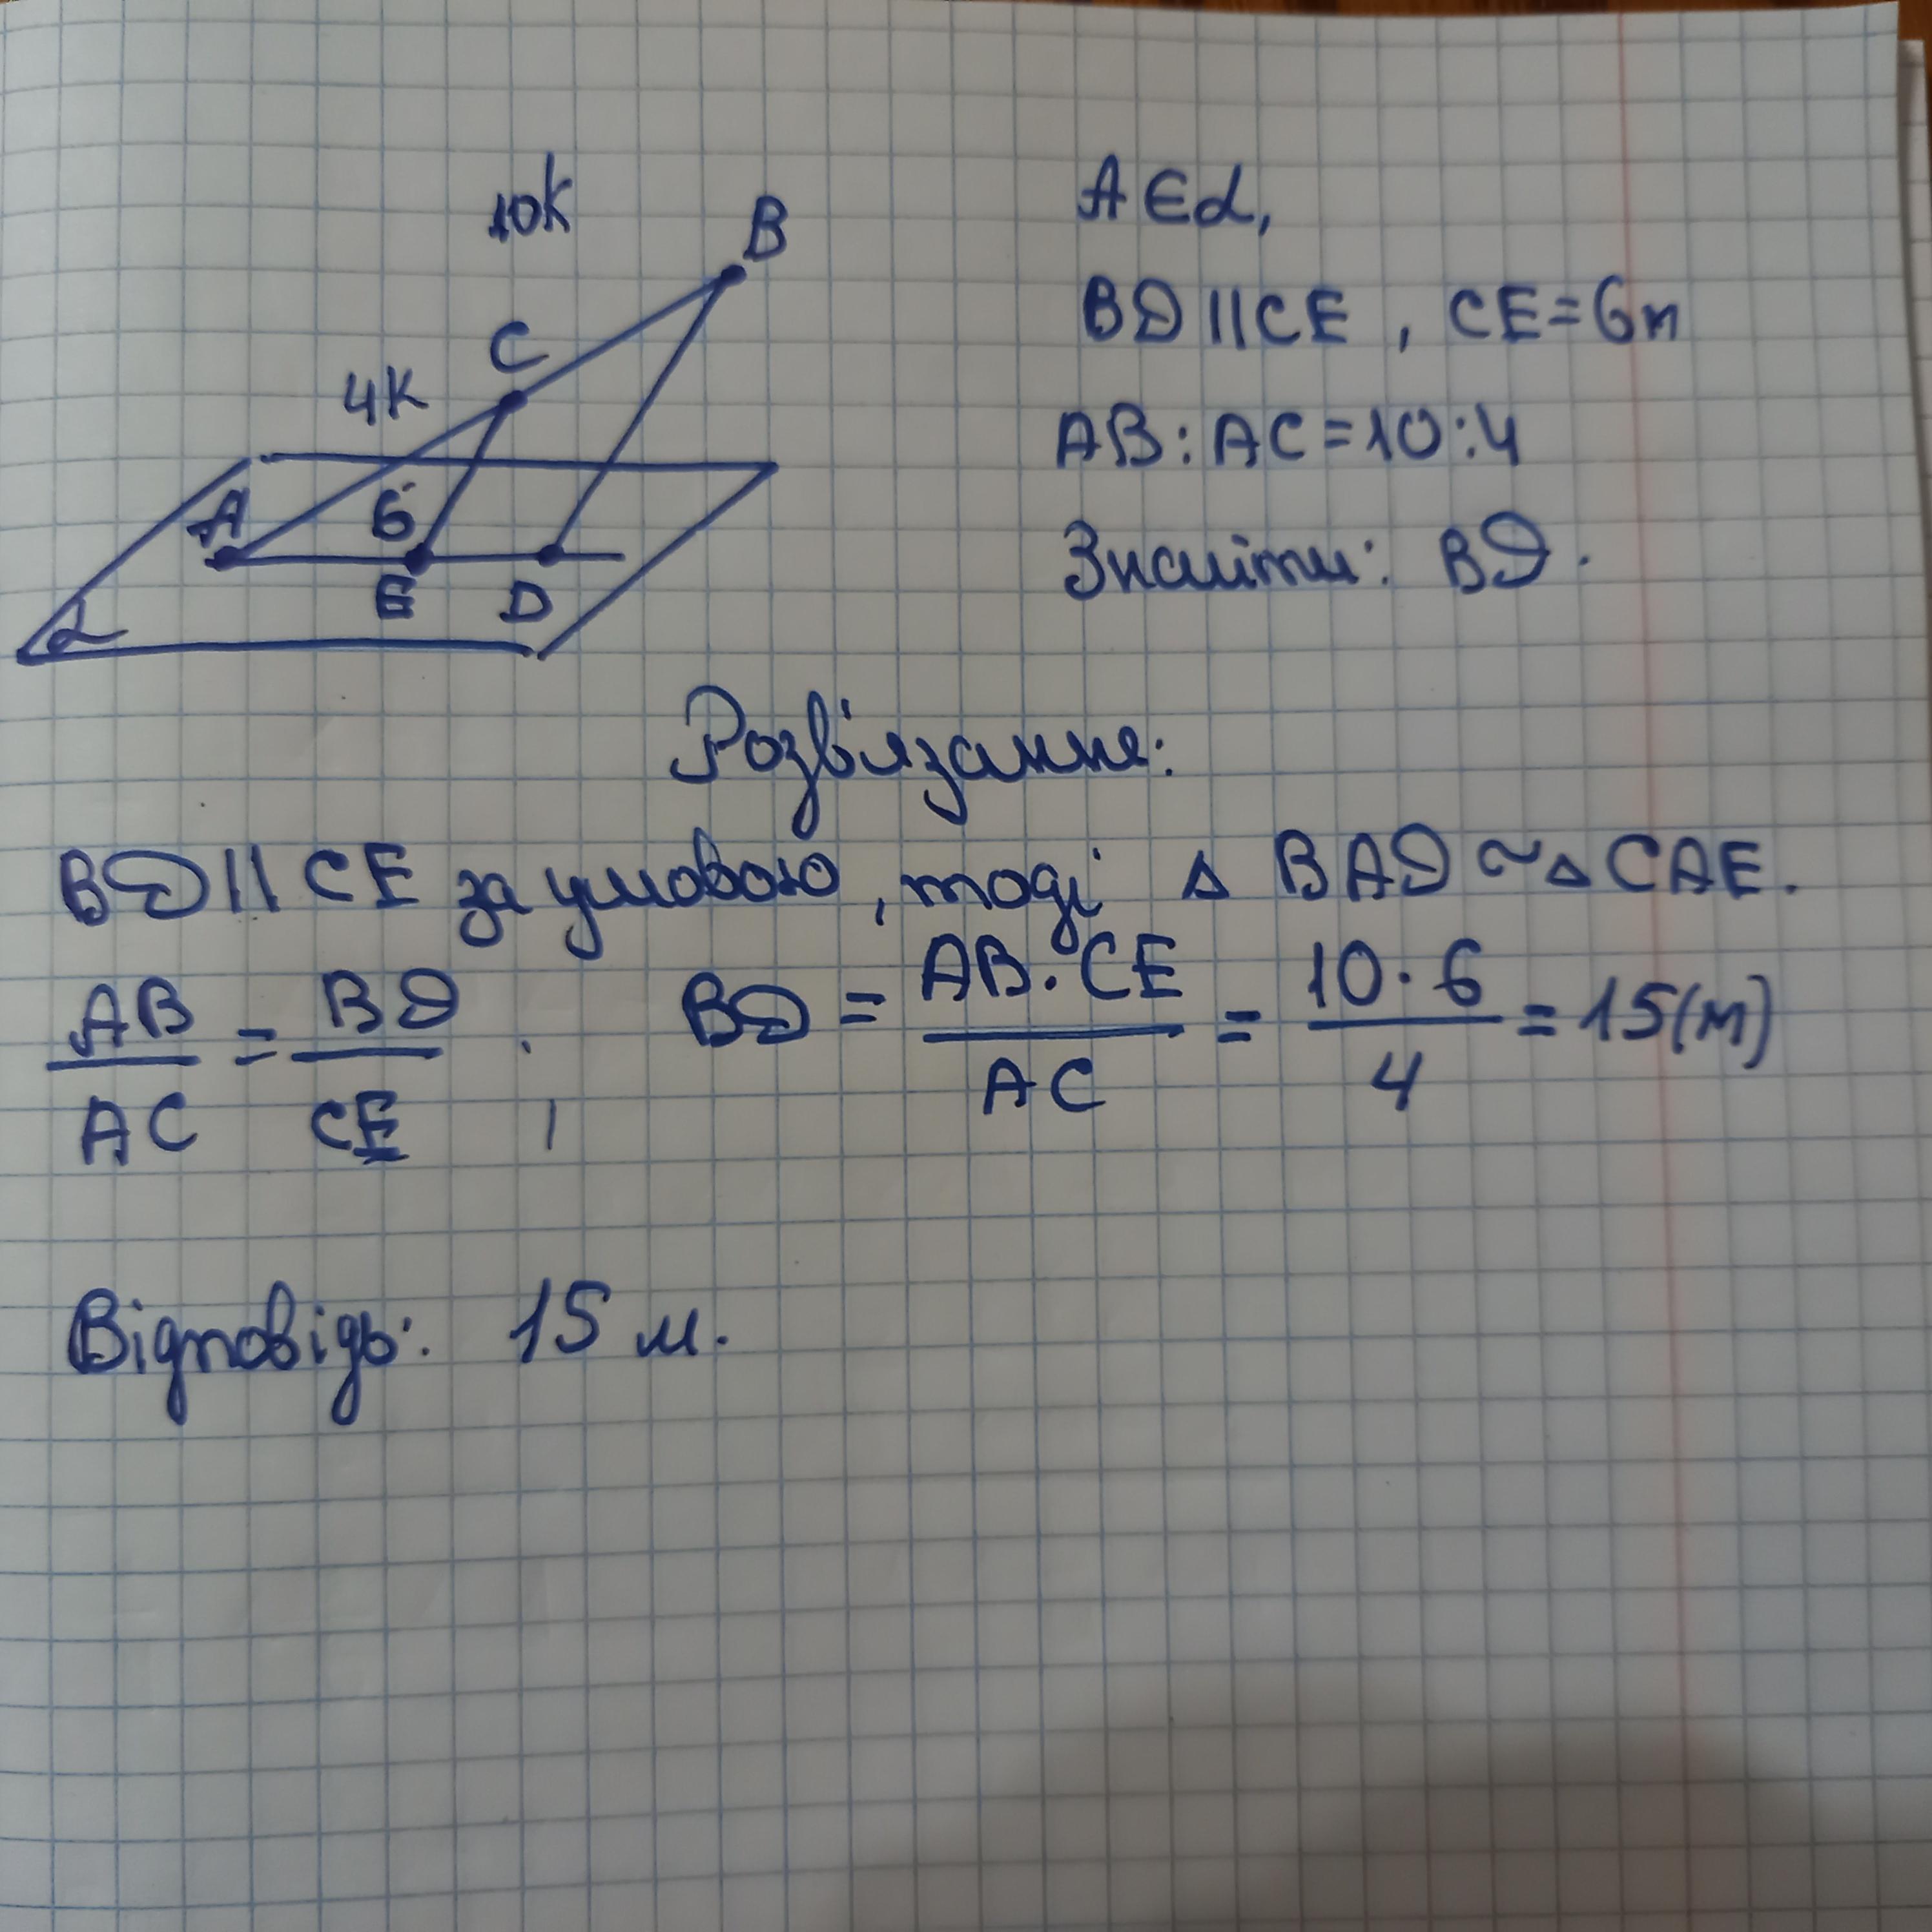 10k
B
C
4k
A
6
E D
α
A∈α,
BD||CE, CE=6м
AB:AC=10:4
Знайти: BD.
Розв'язання:
BD||CE за умовою, тоді Δ BAD ~ Δ CAE.
AB/AC = BD/CE; BD = AB·CE/AC = 10·6/4 = 15(м)
Відповідь: 15 м.